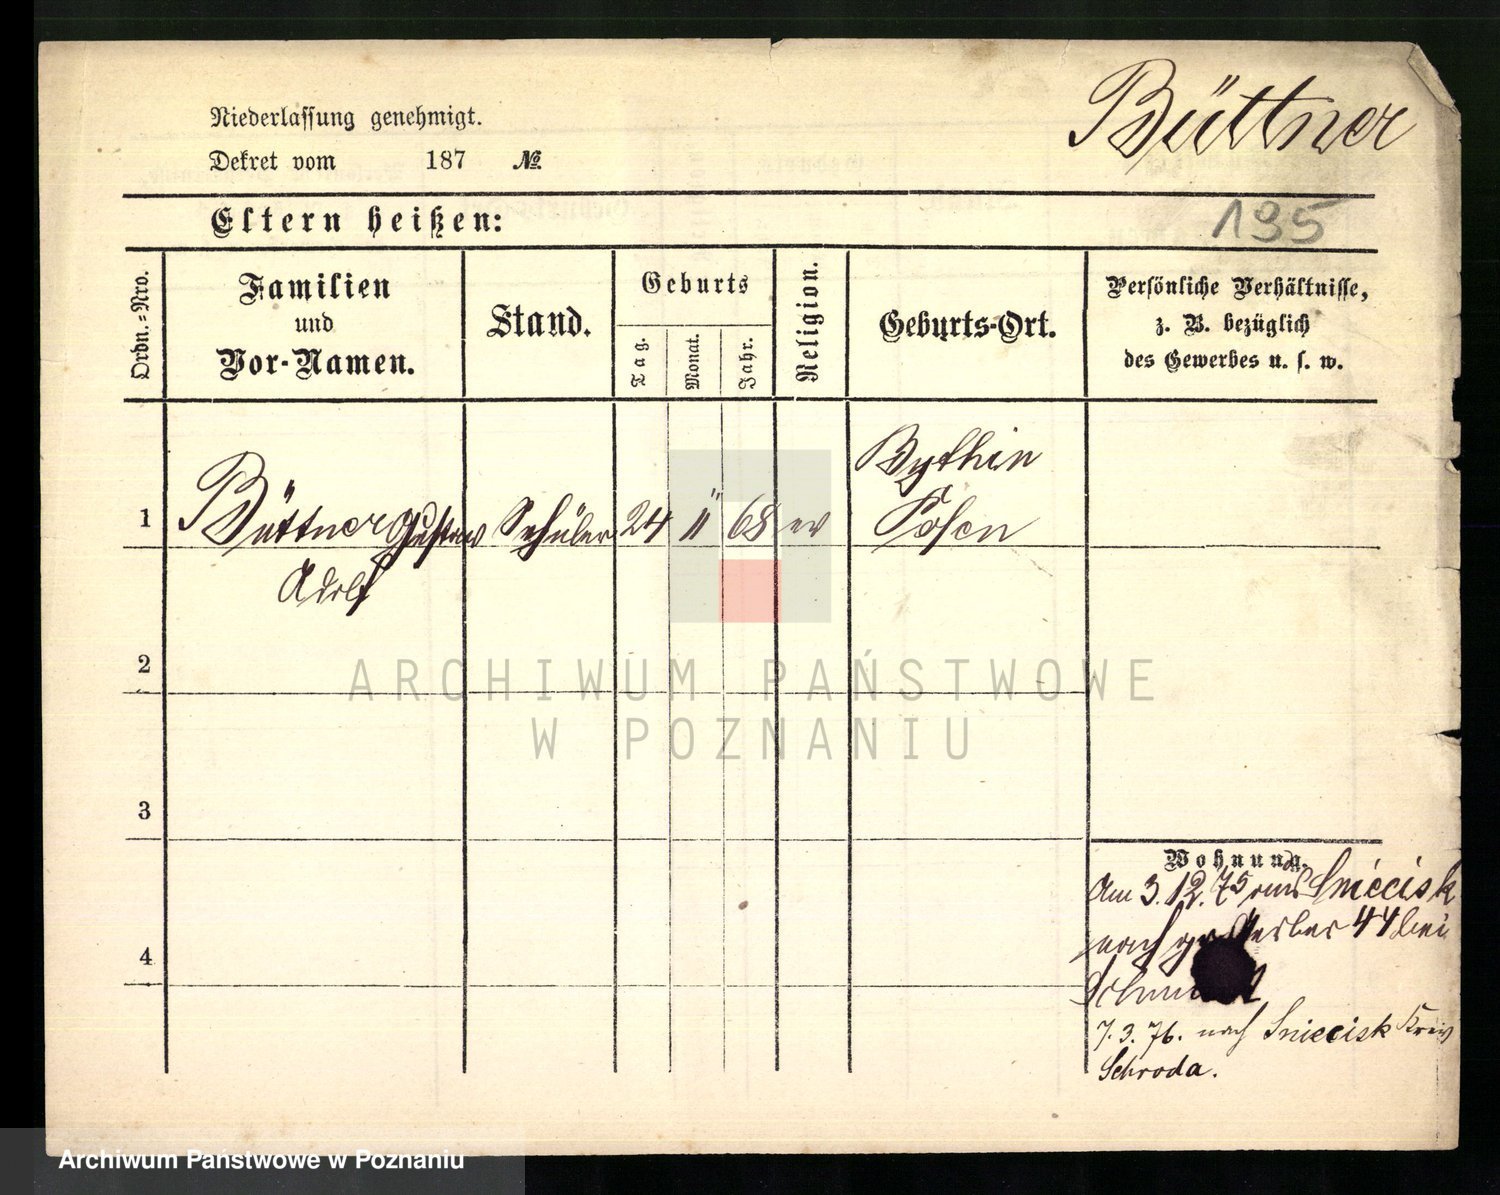 Büttner
Niederlassung genehmigt.
Dekret vom 187 №
195
Eltern heißen:
Ordn.-Nro.
Familien
und
Vor-Namen.
Stand.
Geburts
Tag.
Monat.
Jahr.
Religion.
Geburts-Ort.
Persönliche Verhältnisse,
z. B. bezüglich
des Gewerbes u. s. w.
1 Büttner Gustav Schüler 24 11 68 ev Bythin
Posen
Adolf
2
3
4
Wohnung.
Am 3.12.75 aus Sniecisk
nach gr Gerber 44 bei
7.3.76. nach Sniecisk Kreis
Schroda.
ARCHIWUM PAŃSTWOWE
W POZNANIU
Archiwum Państwowe w Poznaniu